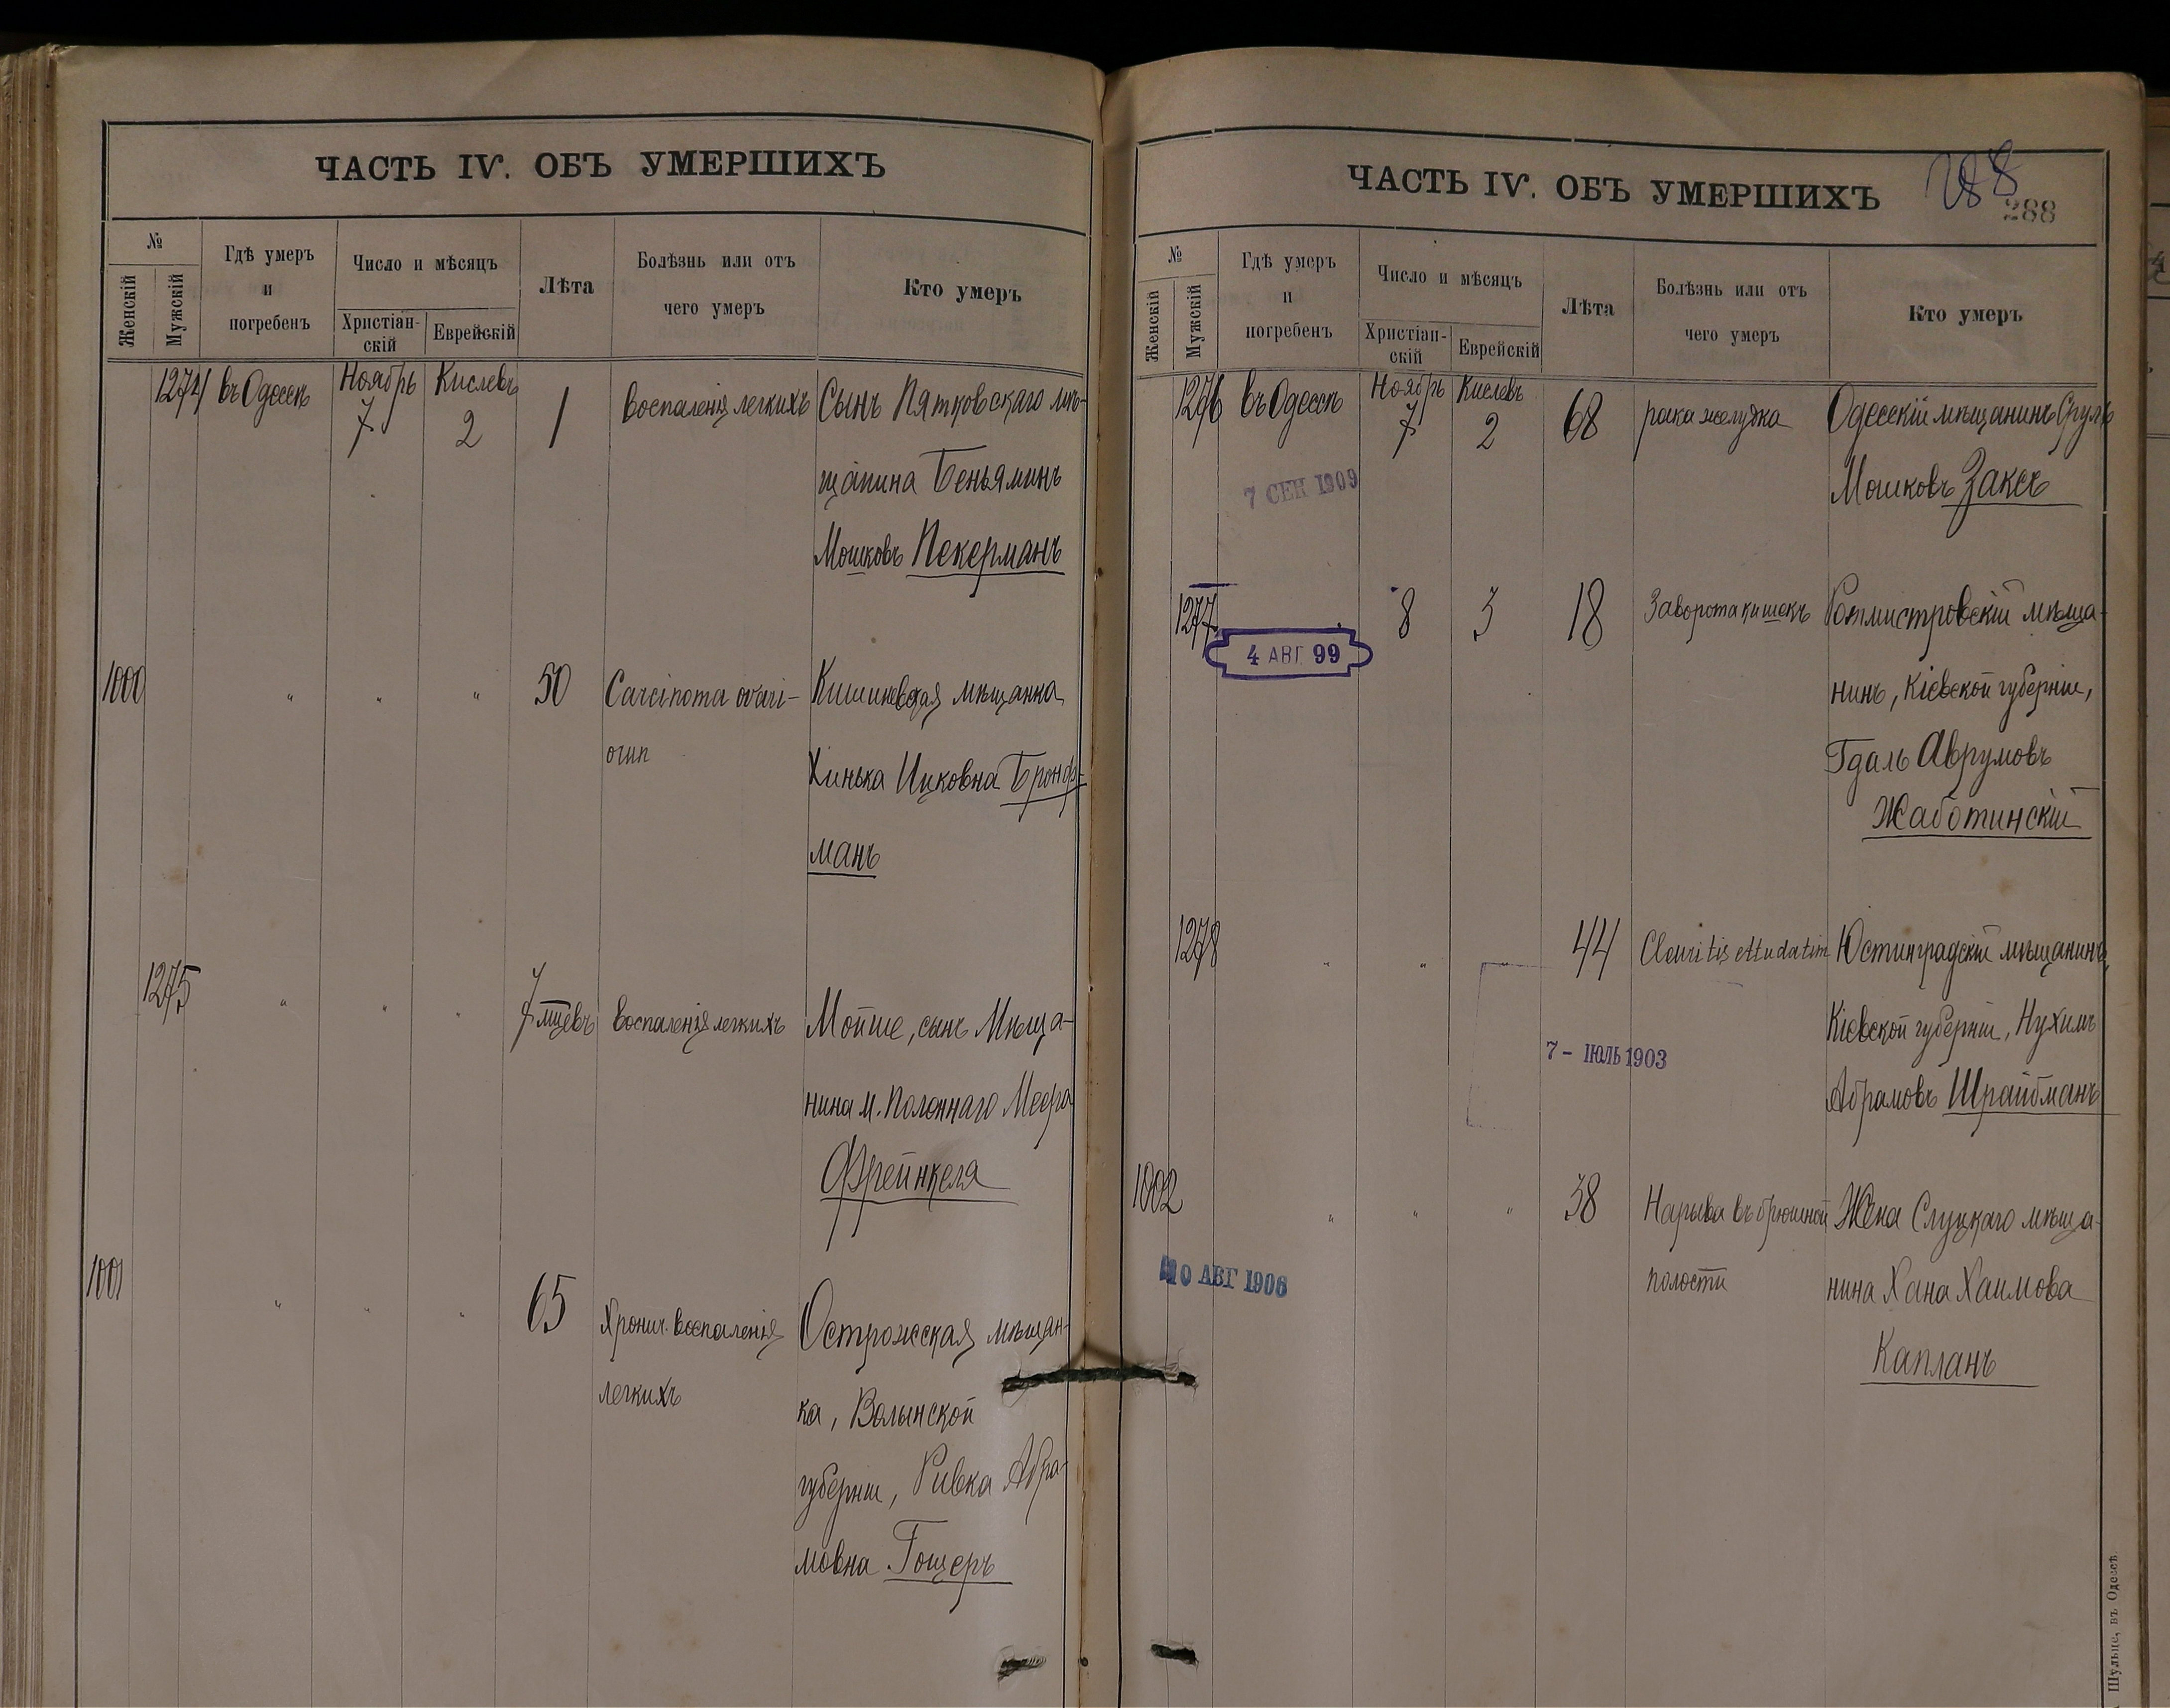 ЧАСТЬ IV. ОБЪ УМЕРШИХЪ
№
Женскій
Мужскій
Гдѣ умеръ
и
погребенъ
Число и мѣсяцъ
Христіан-
скій
Еврейскій
Лѣта
Болѣзнь или отъ
чего умеръ
Кто умеръ
1274 въ Одессѣ Ноябрь 7 Кислевъ 2 1 Воспаленія легкихъ Сынъ Пятковскаго мѣ-
щанина Беньяминъ
Мошковъ Пекерманъ
1000 " " " 50 Carcinoma ovari- Кишиневская мѣщанка
orum Хинька Ицковна Бронф-
манъ
1275 " " " 7 мцевъ Воспаленія легкихъ Мойше, сынъ Мѣща-
нина м. Полоннаго Меера
Фрейнкеля
1001 " " " 65 Хронич. воспаленія Острожская мѣщан-
легкихъ ка, Волынской
губерніи, Ривка Абра-
мовна Гощеръ
ЧАСТЬ IV. ОБЪ УМЕРШИХЪ
288
288
№
Женскій
Мужскій
Гдѣ умеръ
и
погребенъ
Число и мѣсяцъ
Христіан-
скій
Еврейскій
Лѣта
Болѣзнь или отъ
чего умеръ
Кто умеръ
1276 въ Одессѣ Ноябрь 7 Кислевъ 2 68 рака желудка Одесскій мѣщанинъ Сруль
7 СЕН 1909 Мошковъ Заксъ
1277 8 3 18 Заворота кишекъ Ротмистровскій мѣща-
4 АВГ 99
нинъ, Кіевской губерніи,
Гдаль Аврумовъ
Жаботинскій
1278 " " " 44 Юстинградскій мѣщанинъ,
Кіевской губерніи, Нухимъ
7 - ІЮЛЬ 1903
Абрамовъ Шрайбманъ
1002 " " " 38 Нарыва въ брюшной Жена Слуцкаго мѣща-
10 АВГ 1906 полости нина Хана Хаимова
Капланъ
Шульце, въ Одессѣ.